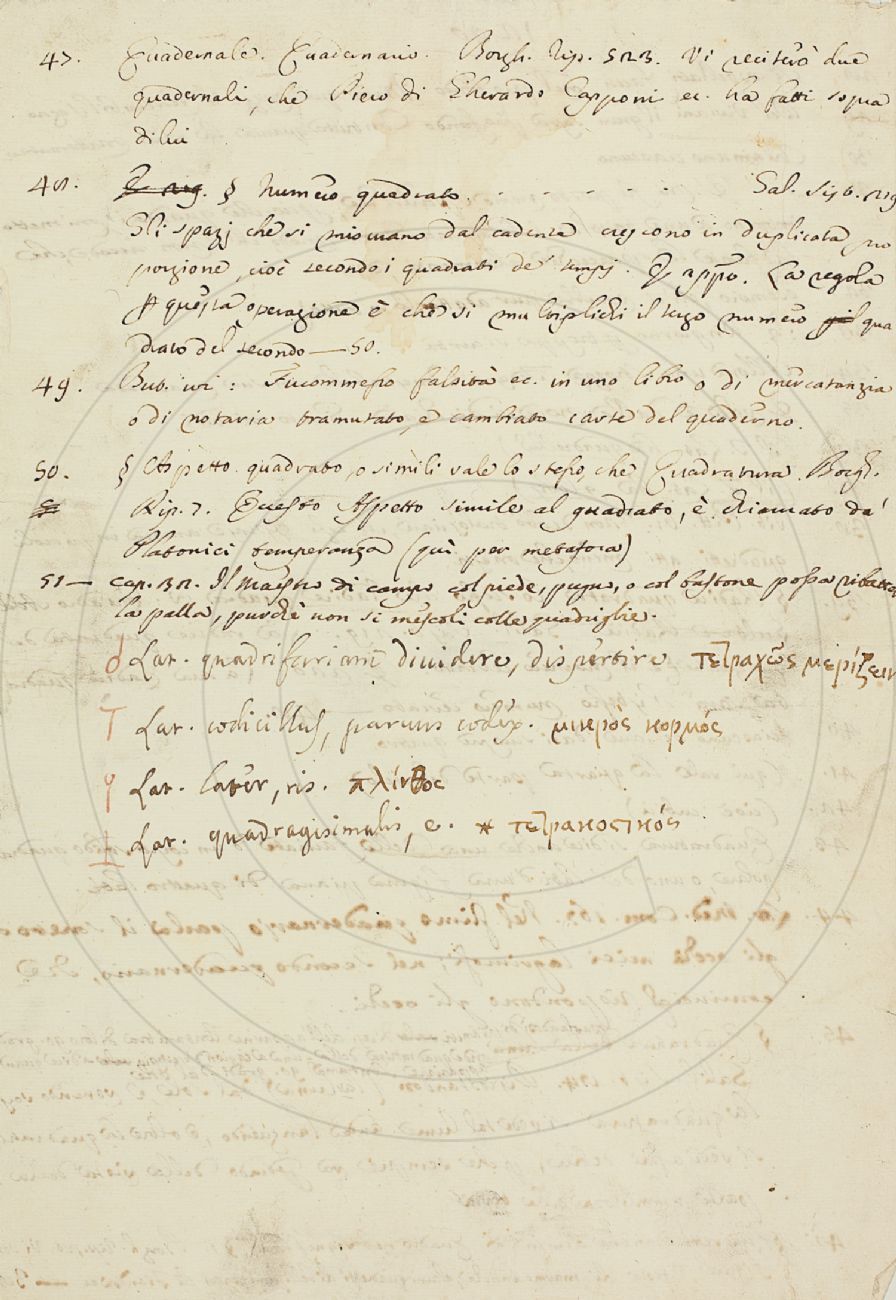 47. Quadernale. Quadernario. Borgh. Rip. 523. Vi reciterò due
quadernali, che Piero di Gherardo Capponi ec. ha fatti sopra
di lui
48. § Numero quadrato. - - - - - Gal. Sist. 219
Gli spazj che si misurano dal cadente crescono in duplicata pro
porzione, cioè secondo i quadrati de' tempj. E appr. La regola
questa operazione è che si multiplichi il terzo numero qua
drato del secondo — 50.
49. But. ivi: Fu commesso falsità ec. in uno libro o di mercatanzia
o di notaria tramutato, e cambiato carte del quaderno.
50. § Aspetto quadrato, o simili vale lo stesso, che Quadratura. Borgh.
Rip. 7. Questo Aspetto simile al quadrato, è chiamato da'
Platonici temperanza (quì per metafora)
51 — cap. 32. Il Maestro di campo col piede, pugno, o col bastone possa ribattere
la palla, purchè non si mescoli colle quadriglie.
Lat. quadrifariam dividere, dispertire τετραχῶς μερίζειν
Lat. codicillus, parvus codex. μικρός κορμός
φ Lat. later, ris. πλίνθος
Lat. quadragesimalis, e. * τετρακοστικός